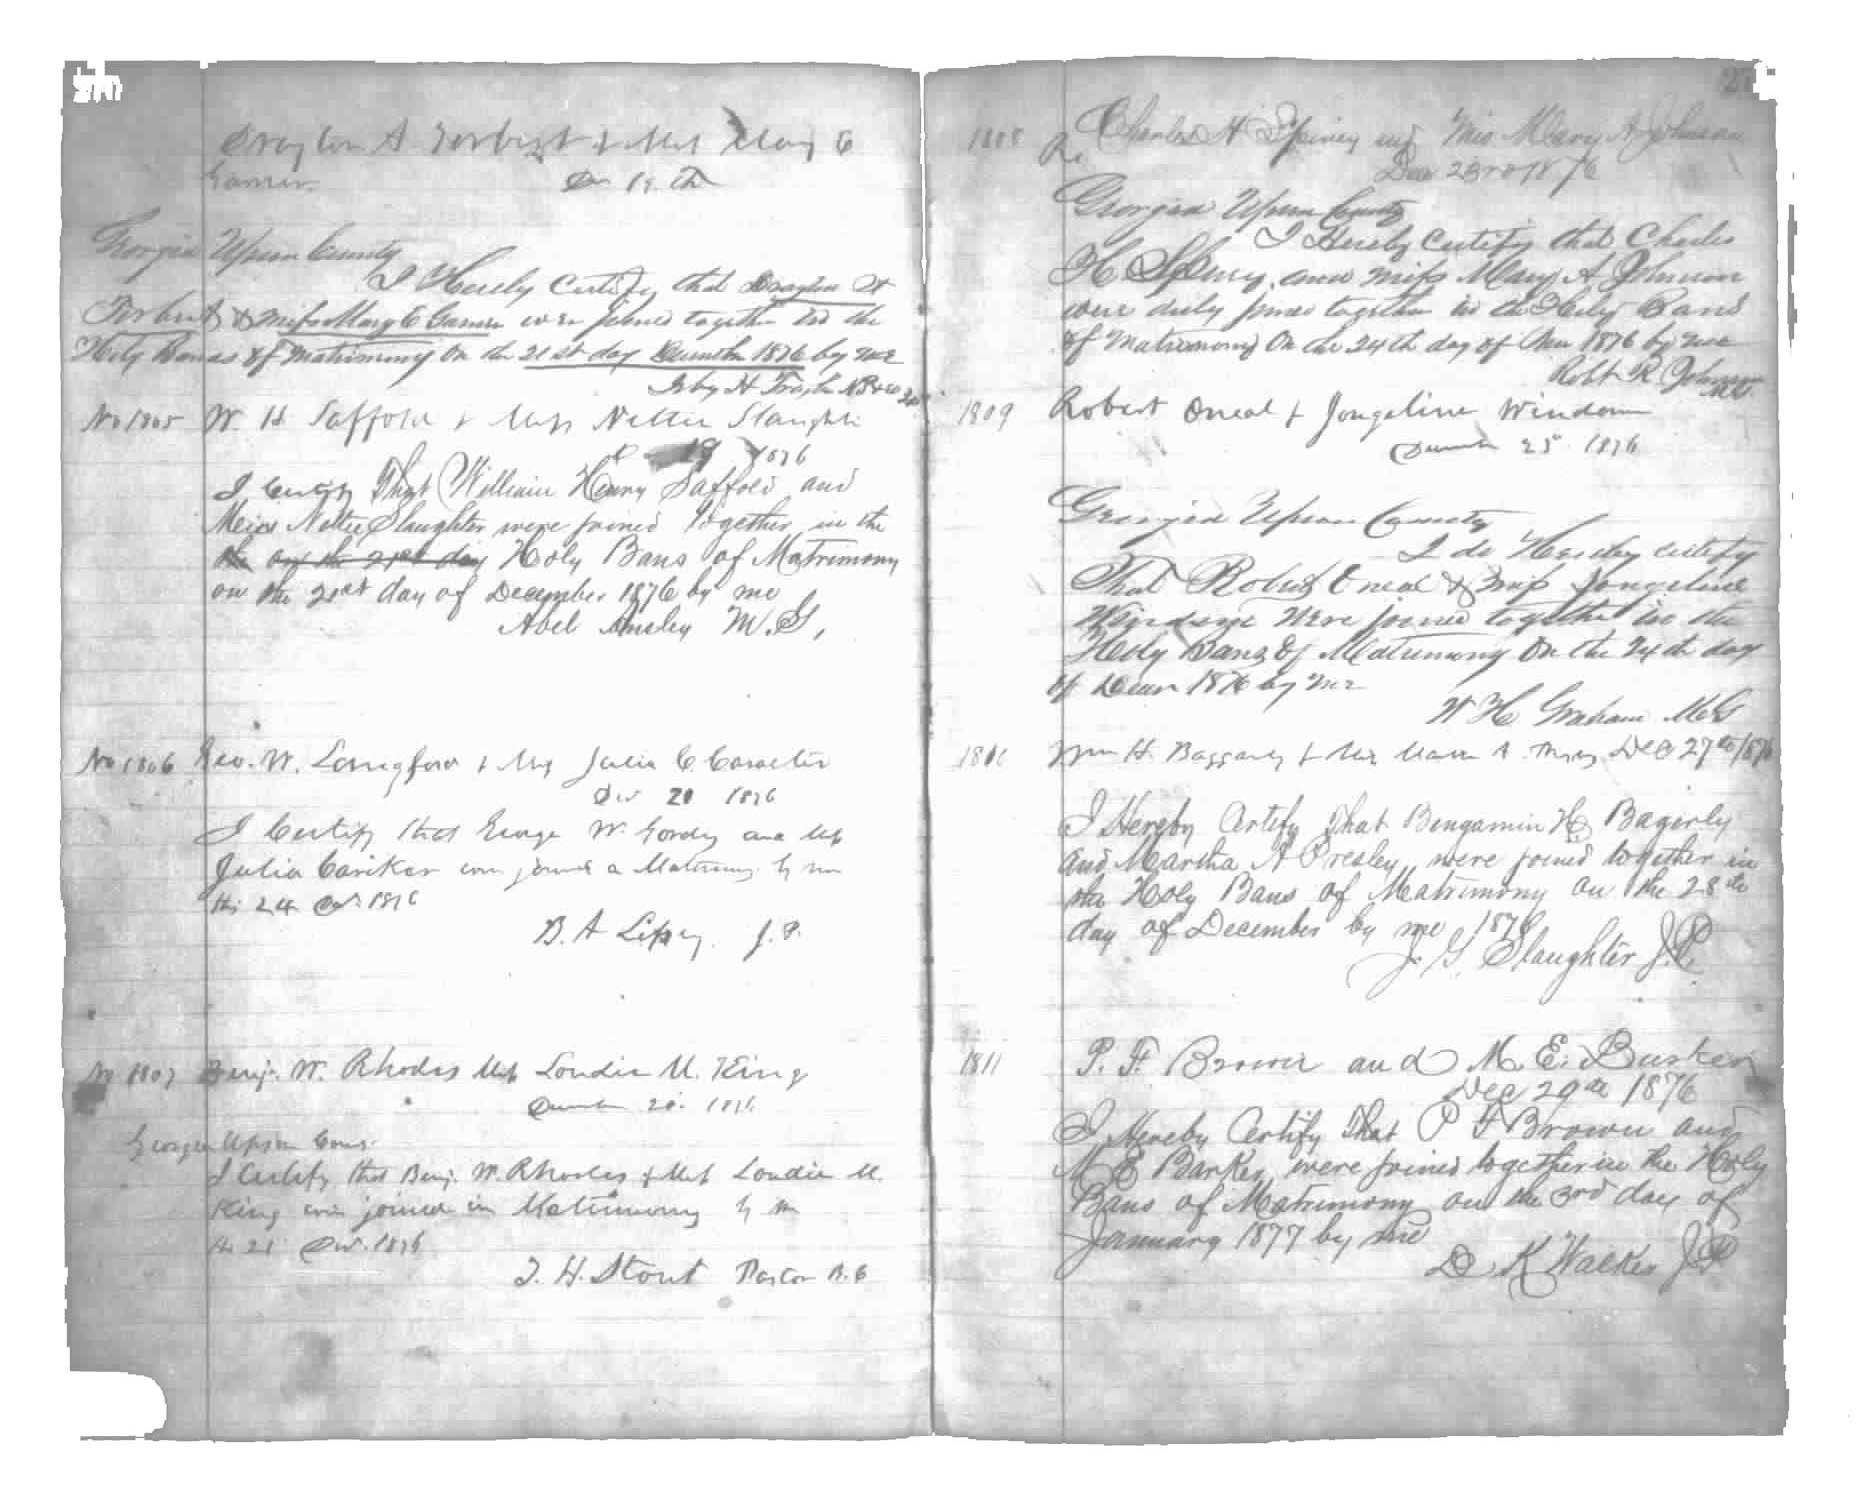 Drayton A Torbert & Miss Mary E
Garner Dec 19th
Georgia Upson County
I Hereby Certify that Drayton A
Torbert & Miss Mary E Garner were joined together in the
Holy Banas of Matrimony On the 21st day December 1876 by me
Irby H
No 1805 W. H Saffold & Miss Nettie Slaughter
19 1876
I Certify That William Henry Saffold and
Miss Nettie Slaughter were joined together in the
the on the 21st day Holy Bans of Matrimony
on the 21st day of December 1876 by me
Abel Ansley M. G,
No 1806 Geo. W. Langford & Miss Julia C.
Dec 20 1876
I Certify that George W. Gordy and Miss
Julia Cariker were joined in Matrimony by me
this 24 Dec. 1876
B. A Lipsey. J. P.
No 1807 Benj. W. Rhodes Miss Loudie M. King
December 20. 1876
Georgia Upson Coun
I Certify that Benj. W. Rhodes & Miss Loudie M.
King were joined in Matrimony by me
this 21 Dec. 1876
J. H. Stout Pastor B. C
1808 Charles H Spivey and Miss Mary A Johnson
Dec 23rd 1876
Georgia Upson County
I Hereby Certify that Charles
H Spivey and Miss Mary A Johnson
were duly joined together in the Holy Bans
of Matrimony On the 24th day of 1876 by me
Robt R Johnson
M.G.
1809 Robert Oneal & Jongeline Windom
December 25 1876
Georgia Upson County
I do Hereby certify
That Robert Oneal & Miss Jongeline
were joined together in the
Holy Bans of Matrimony On the 24th day
of Decm 1876 by me
W H Graham MG
1810 Wm H. Baggarly & Miss A. Dec 27th 1876
I Hereby Certify That Bengamin H Bagerly
and Martha A Presley were joined together in
the Holy Bans of Matrimony on the 28th
day of December by me 1876
J. G. Slaughter J.P.
1811 P. F. Brown and M. E. Barker
Dec 29th 1876
I Hereby Certify That P F Brown and
M E Barker were joined together in the Holy
Bans of Matrimony on the 3rd day of
January 1877 by me
D K Walker J P